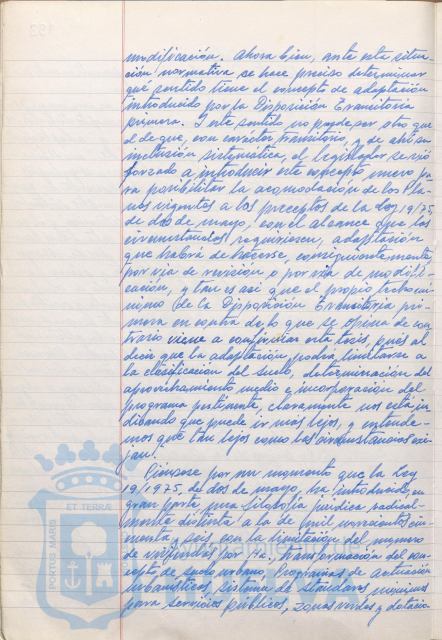 modificación. Ahora bien, ante esta situa-
ción normativa se hace preciso determinar
qué sentido tiene el concepto de adaptación
introducido por la Disposición Transitoria
primera. Y este sentido, no puede ser otro que
el de que, con carácter transitorio, y de ahí su
inclusión sistemática, el legislador se vió
forzado a introducir este concepto nuevo pa
ra posibilitar la acomodación de los Pla-
nes vigentes a los preceptos de la Ley 19/75,
de dos de mayo, con el alcance que las
circunstancias requiriesen, adaptación
que habrá de hacerse, consiguientemente,
por vía de revisión o por vía de modifi-
cación, y tan es así que el propio
de la Disposición Transitoria pri-
mera en contra de lo que se opina de con-
trario viene a confirmar esta tesis, pues al
decir que la adaptación podrá limitarse a
la clasificación del suelo, determinación del
aprovechamiento medio e incorporación del
programa pertinente, claramente nos está in
dicando que puede ir más lejos, y entende-
mos que tan lejos como las circunstancias exi-
jan.
Piénsese por un momento que la Ley
19/1975, de dos de mayo, ha introducido, en
gran parte, una filosofía jurídica radical-
mente distinta a la de mil novecientos cin-
cuenta y seis, con la limitación del número
de viviendas por Ha., transformación del con-
cepto de suelo urbano, Programas de actuación
urbanísticos, sistema de standares mínimos
para servicios públicos, zonas verdes y dotacio
PORTUS MARIS
ET TERRÆ